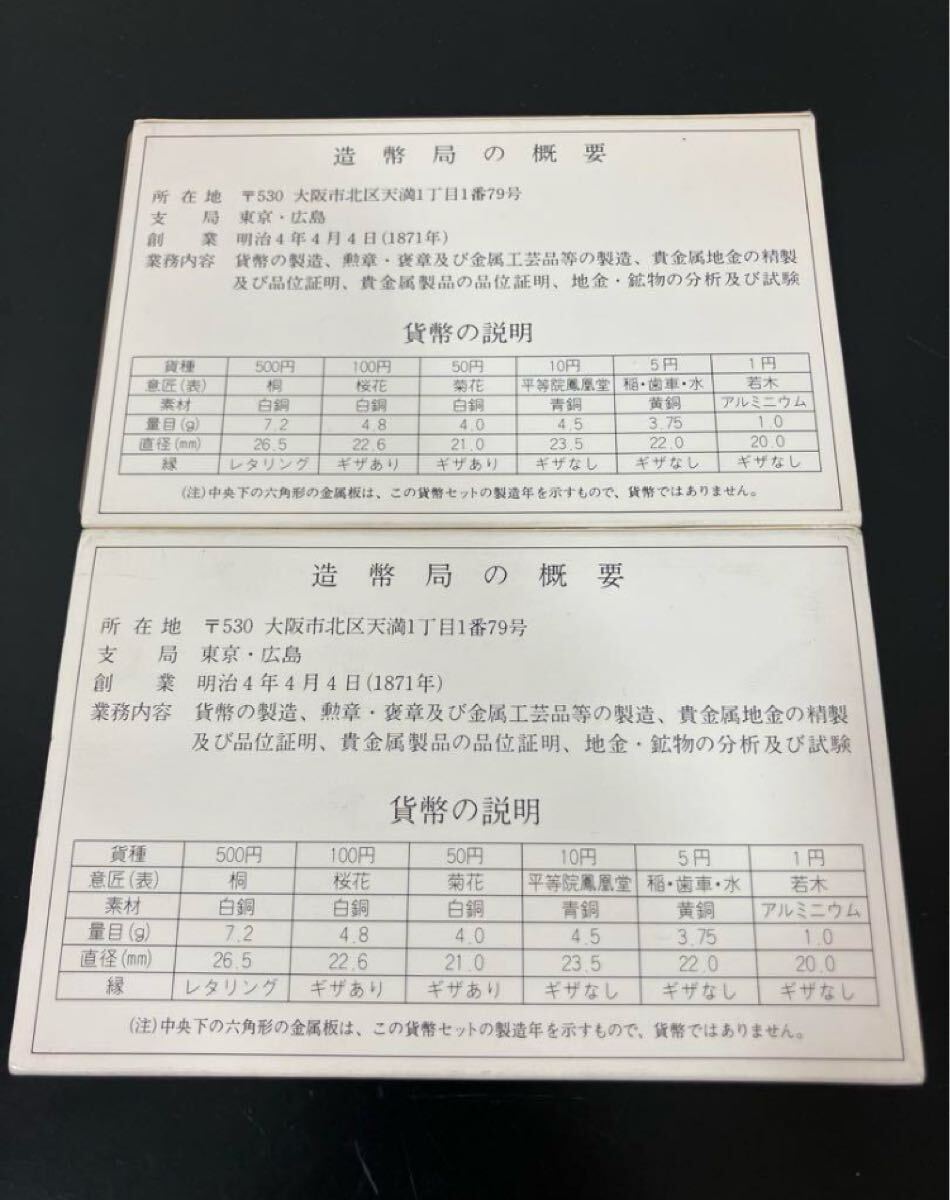 造幣局の概要
所在地 〒530 大阪市北区天満1丁目1番79号
支局 東京・広島
創業 明治4年4月4日(1871年)
業務内容 貨幣の製造、勲章・褒章及び金属工芸品等の製造、貴金属地金の精製
及び品位証明、貴金属製品の品位証明、地金・鉱物の分析及び試験
貨幣の説明
貨種 500円 100円 50円 10円 5円 1円
意匠(表) 桐 桜花 菊花 平等院鳳凰堂 稲・歯車・水 若木
素材 白銅 白銅 白銅 青銅 黄銅 アルミニウム
量目(g) 7.2 4.8 4.0 4.5 3.75 1.0
直径(mm) 26.5 22.6 21.0 23.5 22.0 20.0
縁 レタリング ギザあり ギザあり ギザなし ギザなし ギザなし
(注)中央下の六角形の金属板は、この貨幣セットの製造年を示すもので、貨幣ではありません。
造幣局の概要
所在地 〒530 大阪市北区天満1丁目1番79号
支局 東京・広島
創業 明治4年4月4日(1871年)
業務内容 貨幣の製造、勲章・褒章及び金属工芸品等の製造、貴金属地金の精製
及び品位証明、貴金属製品の品位証明、地金・鉱物の分析及び試験
貨幣の説明
貨種 500円 100円 50円 10円 5円 1円
意匠(表) 桐 桜花 菊花 平等院鳳凰堂 稲・歯車・水 若木
素材 白銅 白銅 白銅 青銅 黄銅 アルミニウム
量目(g) 7.2 4.8 4.0 4.5 3.75 1.0
直径(mm) 26.5 22.6 21.0 23.5 22.0 20.0
縁 レタリング ギザあり ギザあり ギザなし ギザなし ギザなし
(注)中央下の六角形の金属板は、この貨幣セットの製造年を示すもので、貨幣ではありません。